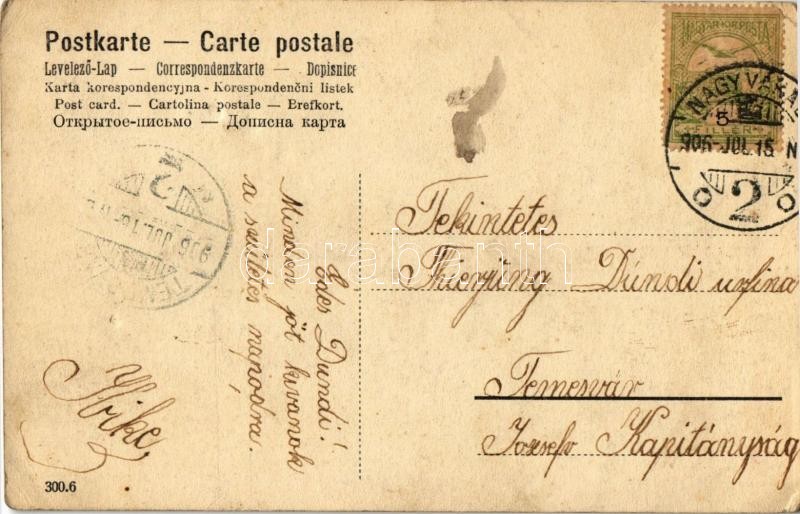 Postkarte — Carte postale
Levelező-Lap — Correspondenzkarte — Dopisnice
Karta korespondencyjna - Korespondenční listek
Post card. — Cartolina postale — Brefkort.
Открытое-письмо — Дописна карта
MAGYAR KIR. POSTA
FILLÉR
NAGYVÁRA
5
906 JUL. 15. N
2
2
906 JUL. 16
TEM
Édes Dundi!
Minden jót kivánok
a születés napodra!
Ibike
Tekintetes
Thierjung Dúndi urfina
Temesvár
Józsefv Kapitányság
300.6
darabanth